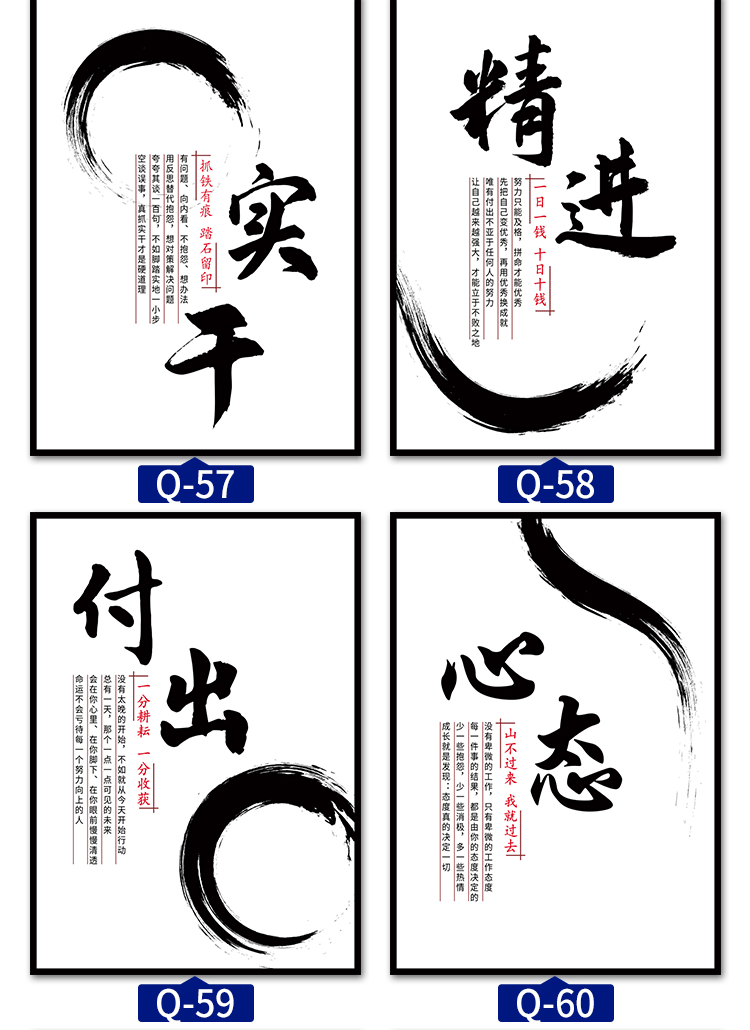 实干
抓铁有痕 踏石留印
有问题、向内看、不抱怨、想办法
用反思替代抱怨，想对策解决问题
夸夸其谈一百句，不如脚踏实地一小步
空谈误事，真抓实干才是硬道理
Q-57
精进
一日一钱 十日十钱
努力只能及格，拼命才能优秀
先把自己变优秀，再用优秀换成就
唯有付出不亚于任何人的努力
让自己越来越强大，才能立于不败之地
Q-58
付出
一分耕耘 一分收获
没有太晚的开始，不如就从今天开始行动
总有一天，那个一点一点可见的未来
会在你心里、在你脚下、在你眼前慢慢清透
命运不会亏待每一个努力向上的人
Q-59
心态
山不过来 我就过去
没有卑微的工作，只有卑微的工作态度
每一件事的结果，都是由你的态度决定的
少一些抱怨，少一些消极，多一些热情
成长就是发现：态度真的决定一切
Q-60